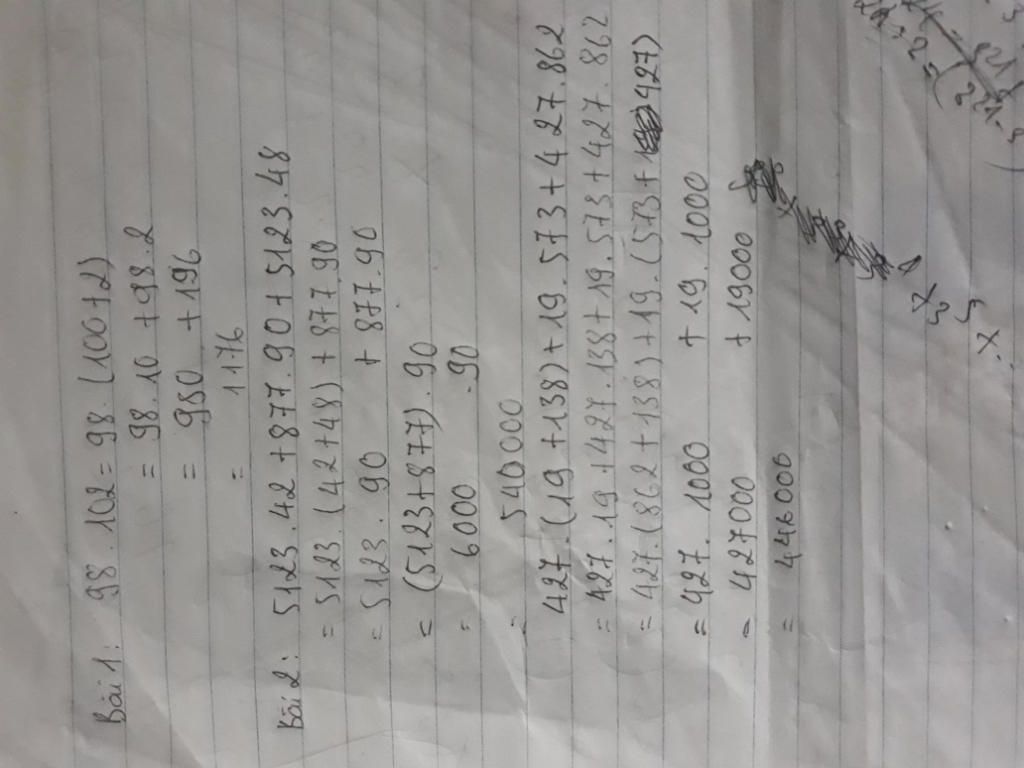 Bài 1: 98 . 102 = 98 . (100 + 2)
= 98 . 10 + 98 . 2
= 980 + 196
= 1176
Bài 2: 5123 . 42 + 877 . 90 + 5123 . 48
= 5123 . (42 + 48) + 877 . 90
= 5123 . 90 + 877 . 90
= (5123 + 877) . 90
= 6000 . 90
= 540000
427 . (19 + 138) + 19 . 573 + 427 . 862
= 427 . 19 + 427 . 138 + 19 . 573 + 427 . 862
= 427 . (862 + 138) + 19 . (573 + 427)
= 427 . 1000 + 19 . 1000
= 427000 + 19000
= 446000